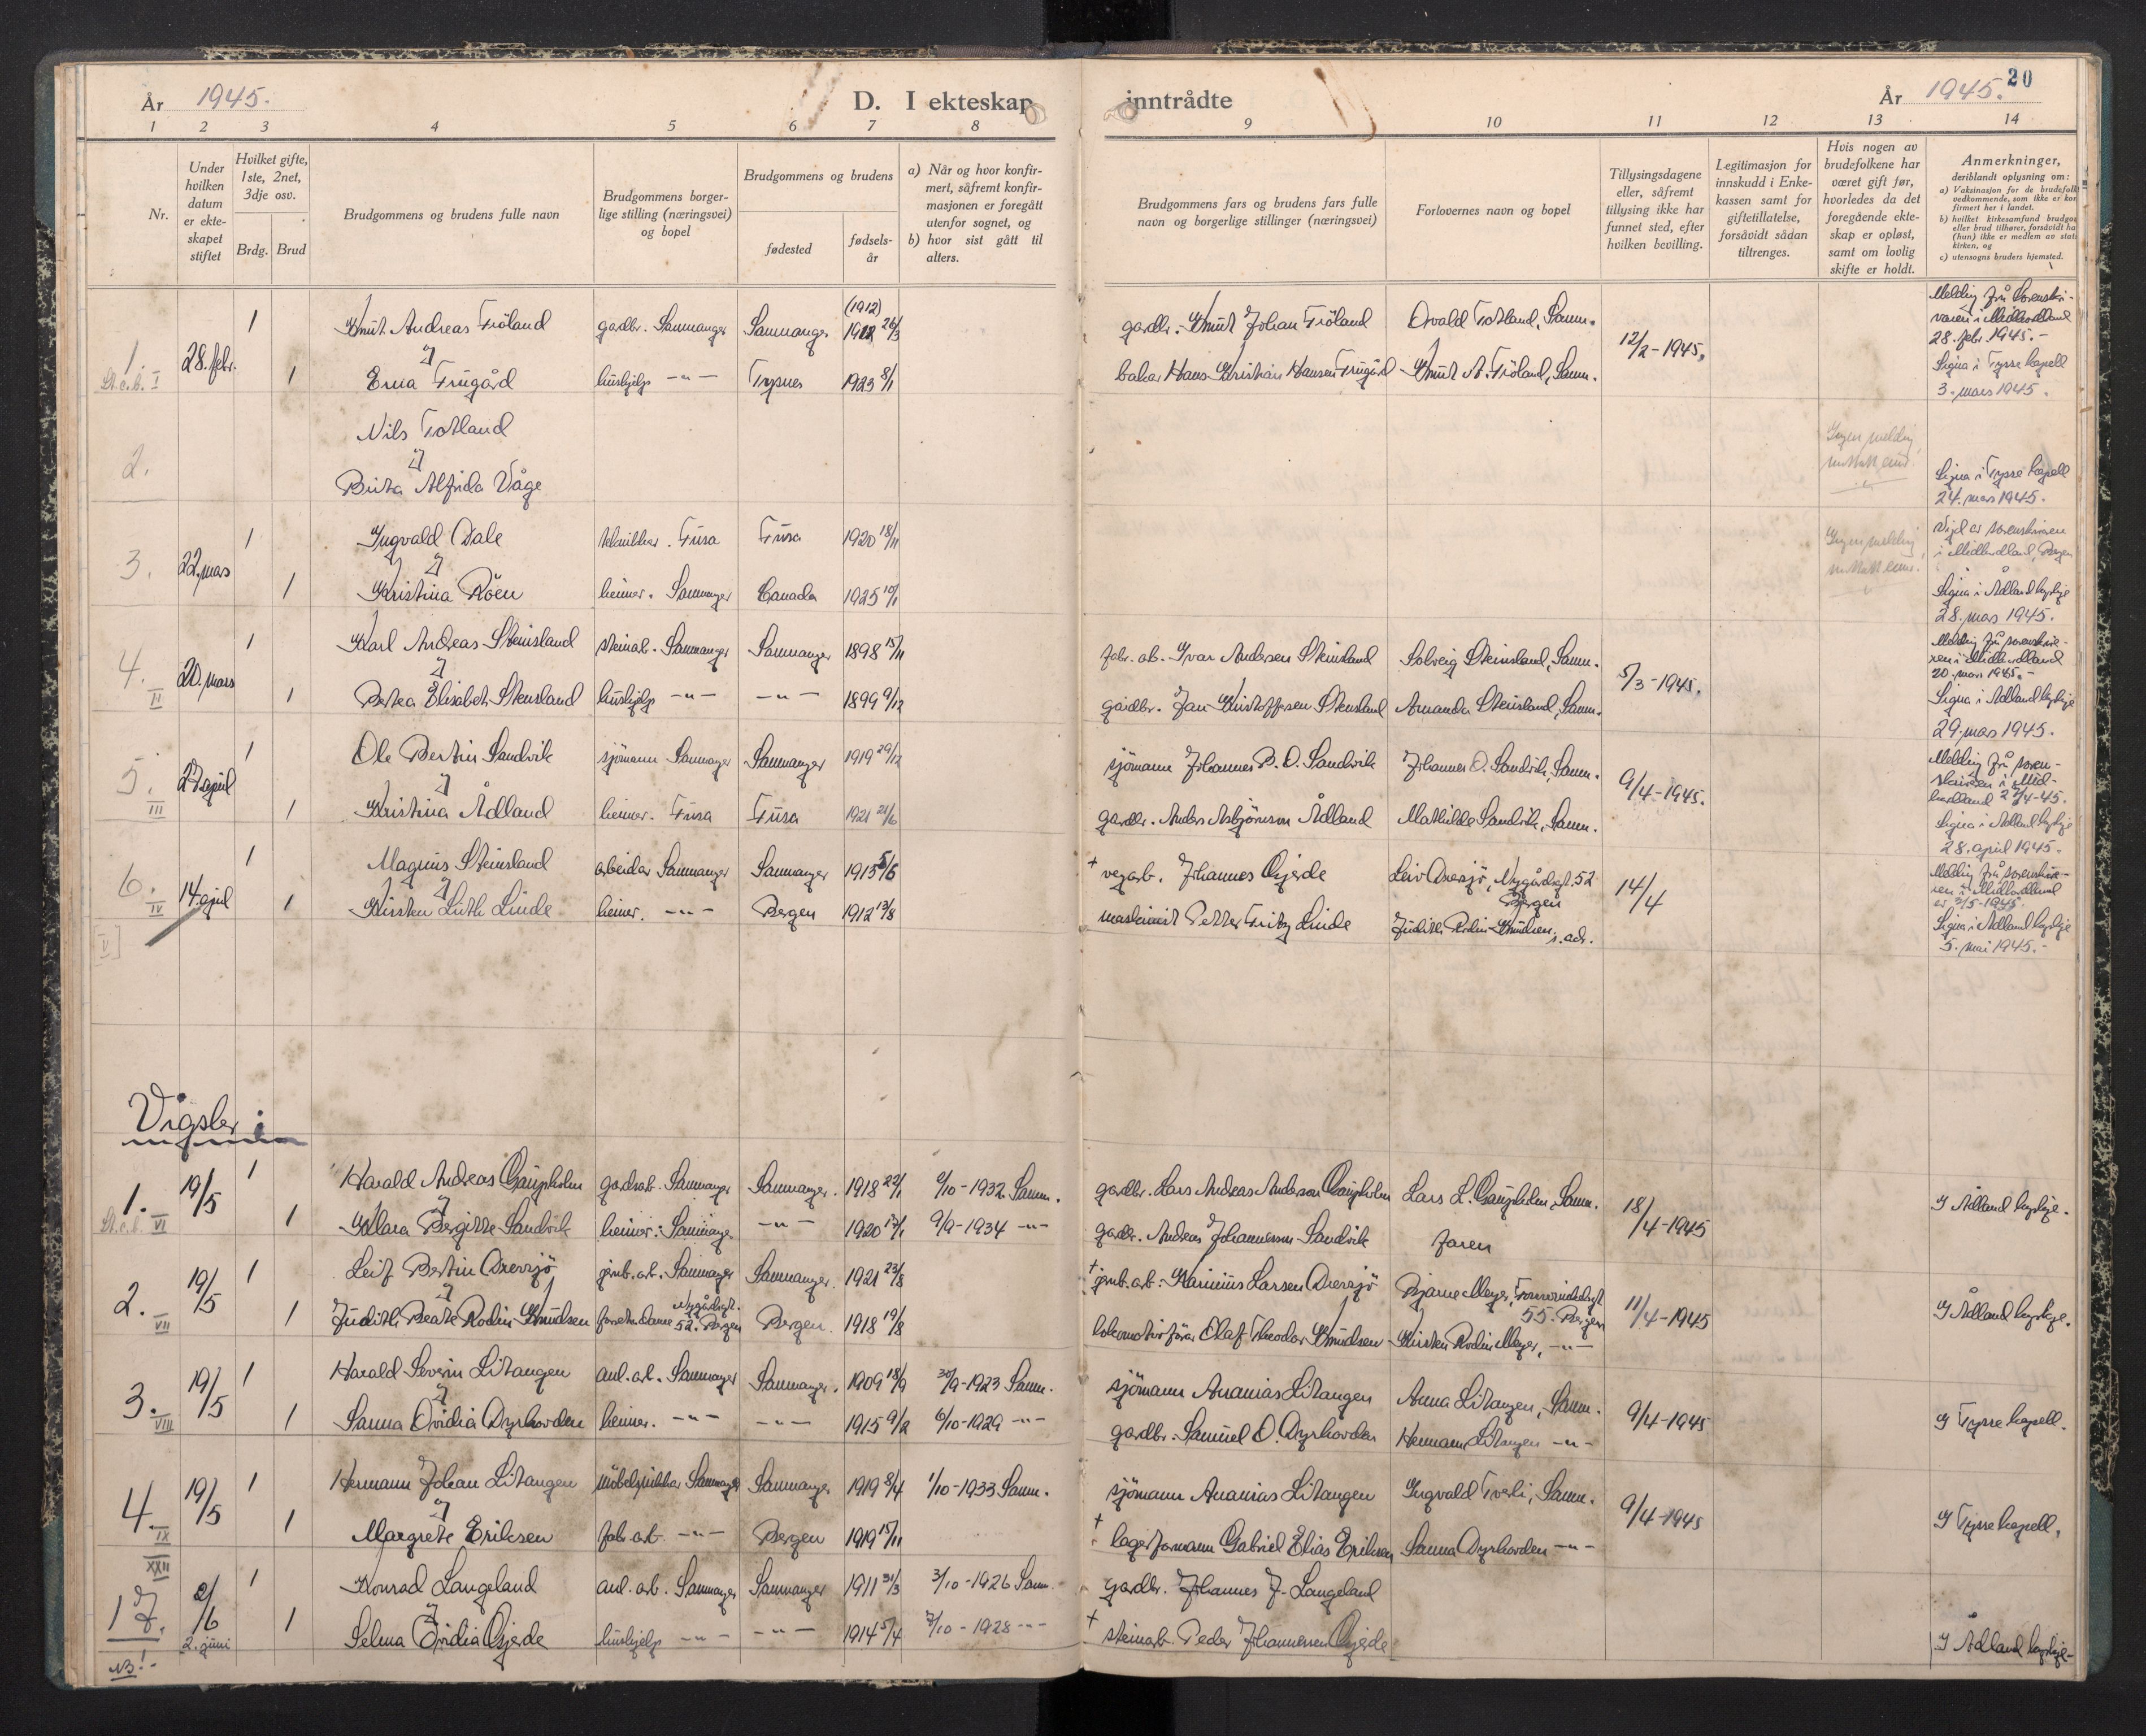 År 1945. D. I ekteskap inntrådte År 1945. 20
1 2 3 4 5 6 7 8 9 10 11 12 13 14
Nr.
Under hvilken datum er ekteskapet stiftet
Hvilket gifte, 1ste, 2net, 3dje osv.
Brdg. Brud
Brudgommens og brudens fulle navn
Brudgommens borgerlige stilling (næringsvei) og bopel
Brudgommens og brudens
fødested
fødselsår
a) Når og hvor konfirmert, såfremt konfirmasjonen er foregått utenfor sognet, og
b) hvor sist gått til alters.
Brudgommens fars og brudens fars fulle navn og borgerlige stillinger (næringsvei)
Forlovernes navn og bopel
Tillysingsdagene eller, såfremt tillysing ikke har funnet sted, efter hvilken bevilling.
Legitimasjon for innskudd i Enkekassen samt for giftetillatelse, forsåvidt sådan tiltrenges.
Hvis nogen av brudefolkene har været gift før, hvorledes da det foregående ekteskap er opløst, samt om lovlig skifte er holdt.
Anmerkninger, deriblandt oplysning om:
a) Vaksinasjon for de brudefolk vedkommende, som ikke er konfirmert her i landet.
c) utensogns bruders hjemsted.
1. 28. febr. 1 Knut Andreas Fröland gardbr. Samnanger Samnanger (1912) 1912 26/3 gardbr. Knut Johan Fröland Osvald Totland, Samn. 12/2-1945. Melding frå Sorenskrivaren i Midhordland 28. febr. 1945.-
St.c.b. I 1 Erna Trügård hushjelp -"- 1923 8/1 bakar Hans Kristian Hansen Trügård Knut A. Fröland, Samn. Signa i Tysse kapell 3. mars 1945.
2. Nils Totland
Brita Alfrida Våge Signa i Tysse kapell 24. mars 1945.
3. 22. mars 1 Ingvald Dale Fusa Fusa 1920 18/11 Ingen melding
1 Kristina Röen heimev. Samnanger Canada 1925 10/1 Signa i Ådland kyrkje 28. mars 1945.
4. II 20. mars 1 Karl Andreas Steinsland steinarb. Samnanger Samnanger 1898 15/11 fabr. arb. Ivar Andersen Steinsland Solveig Steinsland, Samn. 5/3-1945. Melding frå sorenskrivaren i Midhordland 20. mars 1945.-
1 Bertea Elisabeth Steinsland hushjelp -"- -"- 1899 9/12 gardbr. Jan Kristoffersen Steinsland Amanda Steinsland, Samn. Signa i Ådland kyrkje 29. mars 1945.
5. III 27. april 1 Ole Bertin Sandvik sjömann Samnanger Samnanger 1919 29/12 sjömann Johannes B. O. Sandvik Johannes O. Sandvik, Samn. 9/4-1945. Melding frå sorenskrivaren i Midhordland 27/4-45.
1 Kristina Ådland heimev. Fusa Fusa 1921 21/6 gardbr. Anders Asbjörnson Ådland Mathilde Sandvik, Samn. Signa i Ådland kyrkje 28. april 1945.
6. IV 14. april 1 Magnus Steinsland arbeidar Samnanger Samnanger 1915 5/6 + vegarb. Johannes Gjerde Leiv Axersjö, Nygårdsgt. 52 Bergen 14/4 Melding frå sorenskrivaren i Midhordland
[V] 1 Kirsten Lüth Linde heimev. -"- Bergen 1912 13/8 maskinist Petter Fritz Linde Judith Rodin Knudsen, s. adr. Signa i Ådland kyrkje 5. mai 1945.-
Vigsler:
1. 19/5 1 Harald Andreas Gaupholm gardsarb. Samnanger Samnanger. 1918 22/1 2/10-1932 Samn. gardbr. Lars Andreas Anderson Gaupholm Lars L. Gaupholm, Samn. 18/4-1945 I Ådland kyrkje.
St.c.b. VI 1 Klara Bergitte Sandvik heimev. Samnanger -"- 1920 17/1 9/9-1934 -"- gardbr. Andreas Johannesson Sandvik faren
2. VII 19/5 1 Leif Bertin Axersjö jernb. arb. Samnanger Samnanger. 1921 23/8 + jernb. arb. Karinius Larsen Axersjö Bjarne Meyer, 55. Bergen 11/4-1945 I Ådland kyrkje.
1 Judith Beate Rodin Knudsen Nygårdsgt. 52. Bergen Bergen. 1918 19/8 lokomotivförar Olaf Theodor Knudsen Kirsten Rodin Meyer, -"-
3. VIII 19/5 1 Harald Severin Litangen anl. arb. Samnanger Samnanger. 1909 18/9 30/9-1923 Samn. sjömann Ananias Litangen Anna Litangen, Samn. 9/4-1945 I Tysse kapell.
1 Sanna Ovidia Dyrhovden heimev. -"- -"- 1915 9/2 6/10-1929 -"- gardbr. Samuel O. Dyrhovden Hermann Litangen -"-
4. IX 19/5 1 Hermann Johan Litangen möbelsnikkar Samnanger Samnanger 1919 8/4 1/10-1933 Samn. sjömann Ananias Litangen Ingvald Tveit, Samn. 9/4-1945 I Tysse kapell.
1 Margrete Eriksen fabr. arb. -"- Bergen 1919 15/11 + lagerformann Gabriel Elias Eriksen Sanna Dyrhovden -"-
XXII 17. 2/6 2. juni 1 Konrad Langeland anl. arb. Samnanger Samnanger 1911 31/3 3/10-1926 Samn. gardbr. Johannes J. Langeland
NB!- 1 Selma Ovidia Gjerde hushjelp -"- -"- 1914 5/4 7/10-1928 -"- + steinarb. Peder Johannessen Gjerde I Ådland kyrkje-